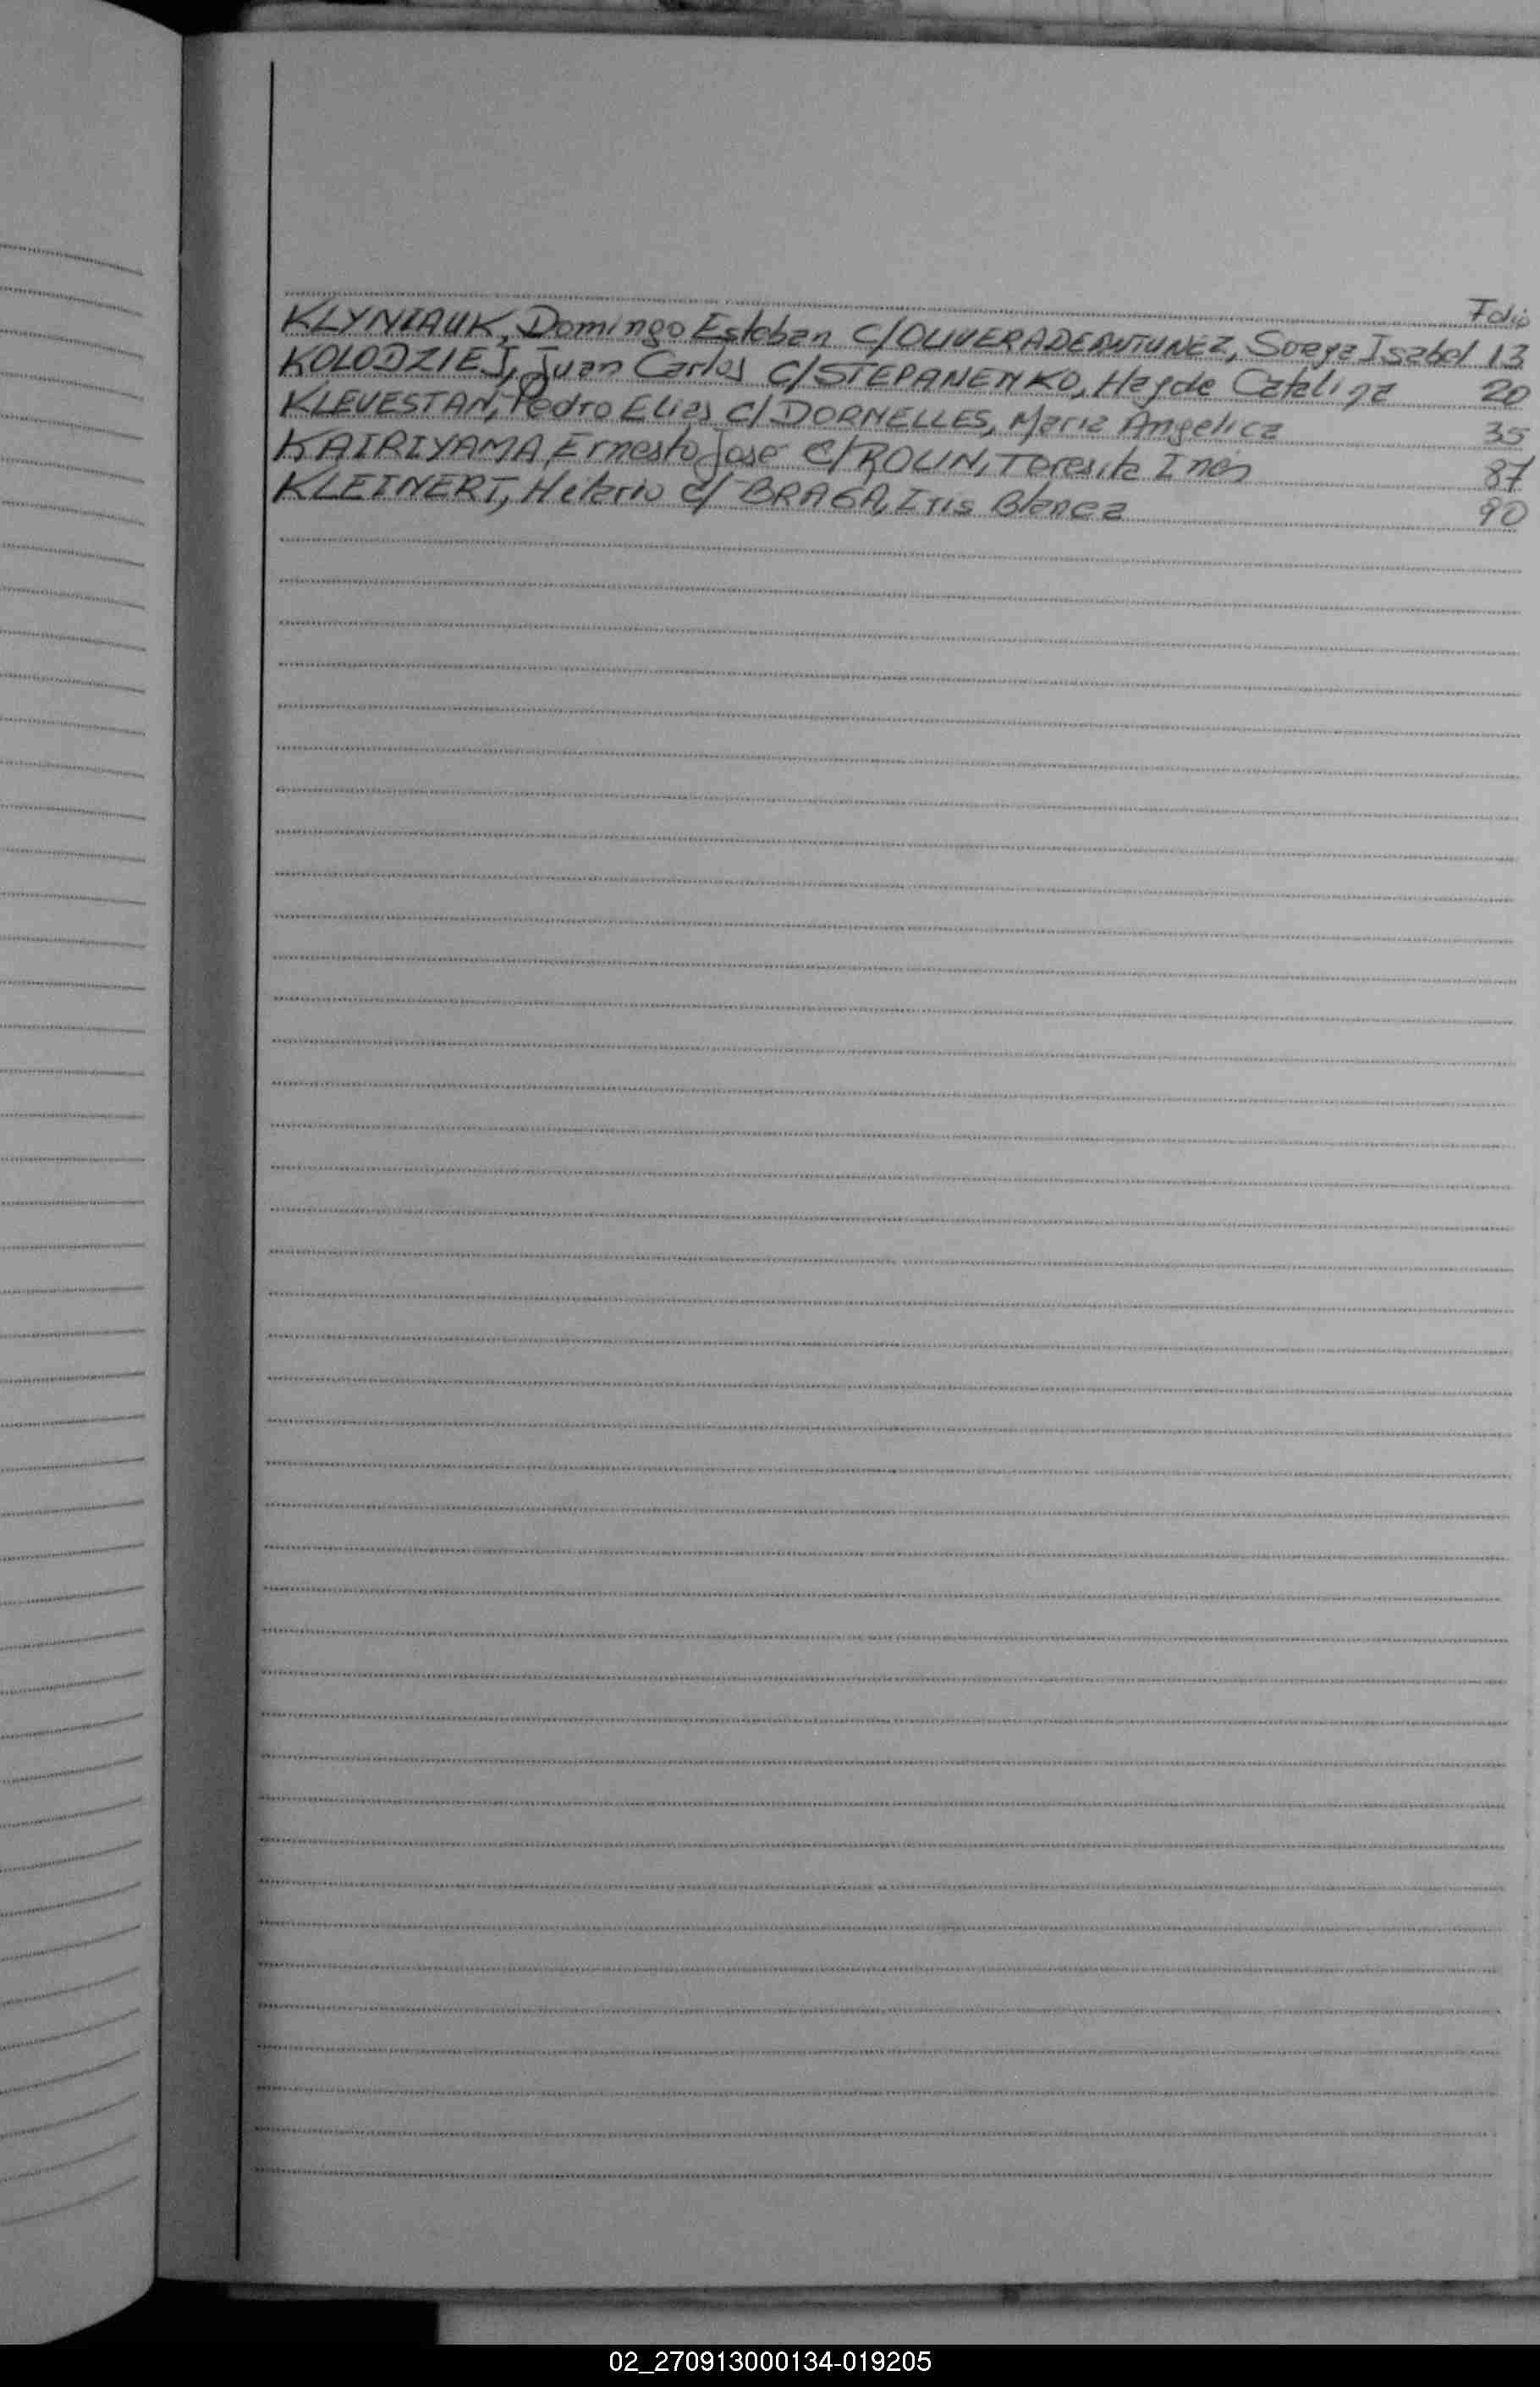 Folio
KLYNIAUK, Domingo Esteban C/OLIVERA DE ANTUNEZ, Isabel 13
KOLODZIEJ, Juan Carlos C/STEPANENKO, Hayde Catalina 20
KLEVESTAN, Pedro Elias C/DORNELLES, Maria Angelica 35
KAIRIYAMA, Ernesto José C/ROLIN, Teresita Inés 87
KLEINERT, C/ BRAGA, Iris Blanca 90
02_270913000134-019205